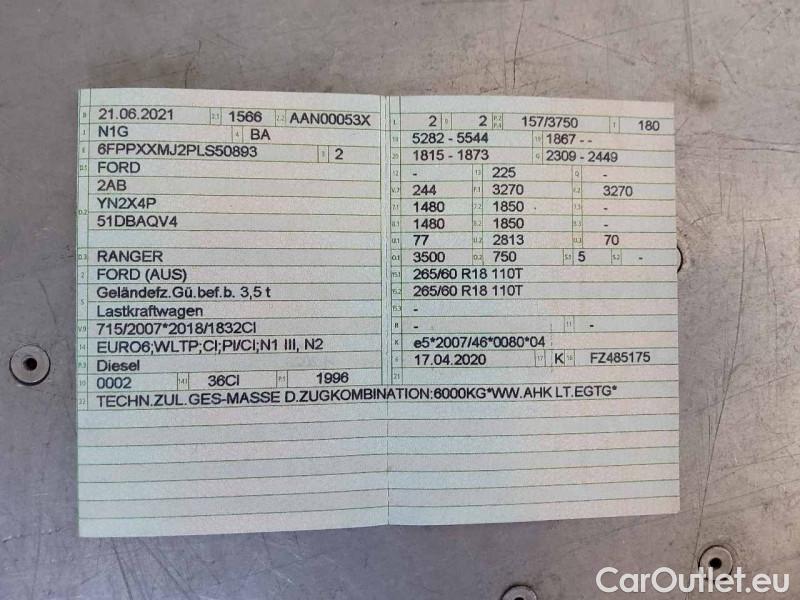 B 21.06.2021 2.1 1566 2.2 AAN00053X
J N1G 4 BA
E 6FPPXXMJ2PLS50893 3 2
D.1 FORD
2AB
D.2 YN2X4P
51DBAQV4
D.3 RANGER
2 FORD (AUS)
5 Geländefz.Gü.bef.b. 3,5 t
Lastkraftwagen
V.9 715/2007*2018/1832CI
14 EURO6;WLTP;CI;PI/CI;N1 III, N2
P.3 Diesel
10 0002 14.1 36CI P.1 1996
22 TECHN.ZUL.GES-MASSE D.ZUGKOMBINATION:6000KG*WW.AHK LT.EGTG*
L 2 9 2 P.2 P.4 157/3750 T 180
18 5282 - 5544 19 1867 - -
20 1815 - 1873 G 2309 - 2449
12 - 13 225 Q -
V.7 244 F.1 3270 F.2 3270
7.1 1480 7.2 1850 7.3 -
8.1 1480 8.2 1850 8.3 -
U.1 77 U.2 2813 U.3 70
O.1 3500 O.2 750 S.1 5 S.2 -
15.1 265/60 R18 110T
15.2 265/60 R18 110T
15.3 -
R - 11 -
K e5*2007/46*0080*04
6 17.04.2020 17 K 16 FZ485175
21
CarOutlet.eu